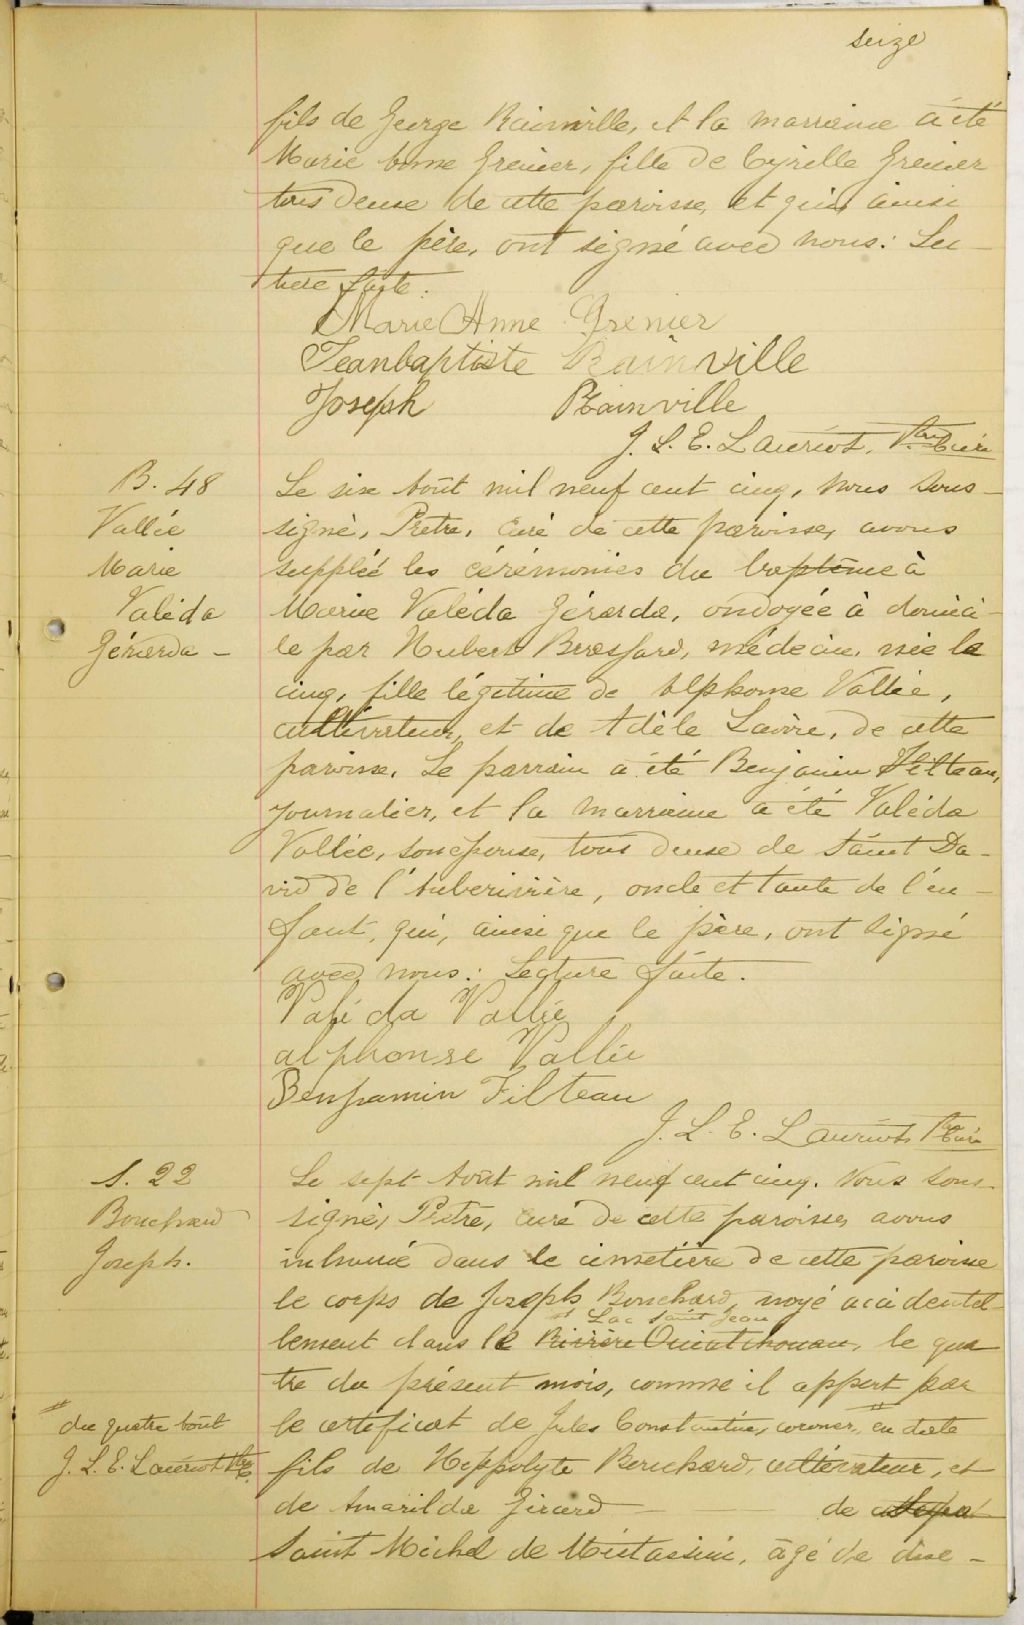 seize
fils de George Rainville, et la marraine a été
Marie Anne Grenier, fille de Cyrille Grenier
tous deux de cette paroisse, et qui, ainsi
que le père, ont signé avec nous. Lec-
ture faite.
Marie Anne Grenier
Jeanbaptiste Rainville
Joseph Rainville
J. L. E. Lauriot, Ptre Curé
B. 48
Vallée
Marie
Valéda
Gérarda -
Le six Août mil neuf cent cinq, nous sous-
signé, Prêtre, Curé de cette paroisse, avons
suppléé les cérémonies du baptême à
Marie Valéda Gérarda, ondoyée à domici-
le par Hubert Brassard, médecin, née le
cinq, fille légitime de Alphonse Vallée,
cultivateur, et de Adèle Lavoie, de cette
paroisse. Le parrain a été Benjamin Filteau,
journalier, et la marraine a été Valéda
Vallée, son épouse, tous deux de Saint Da-
vid de l'Auberivière, oncle et tante de l'en-
fant, qui, ainsi que le père, ont signé
avec nous. Lecture faite.
Valéda Vallée
alphonse Vallée
Benjamin Filteau
J. L. E. Lauriot, Ptre Curé
S. 22
Bouchard
Joseph.
Le sept Août mil neuf cent cinq. Nous sous-
signé, Prêtre, curé de cette paroisse, avons
inhumé dans le cimetière de cette paroisse
le corps de Joseph Bouchard, noyé accidentel-
Lac Saint Jean
lement dans le Rivière Ouiatchouan, le qua
tre du présent mois, comme il appert par
le certificat de Jules Constantin, coroner, en date
du quatre Août
J. L. E. Lauriot Ptre
fils de Hippolyte Bouchard, cultivateur, et
de Amarilda Girard de
Saint Michel de Mistassini, âgé de dix-